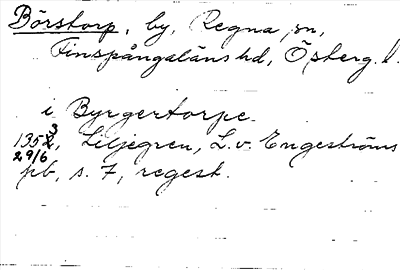 Börstorp, by, Regna sn,
Finspångaläns hd, Österg. l.
i Byrgertorpe.
1353, Liljegren, L. v. Engeströms
29/6
pb, s. 7, regest.